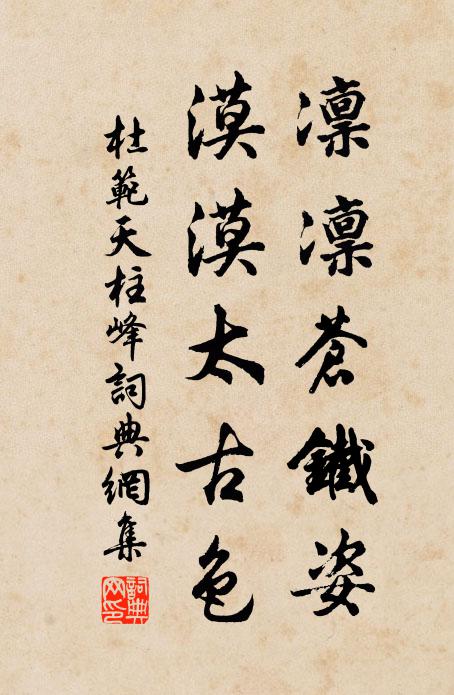 凛凛蒼鐵姿
漠漠太古色
杜範天柱峰詞典網集
詞典網印